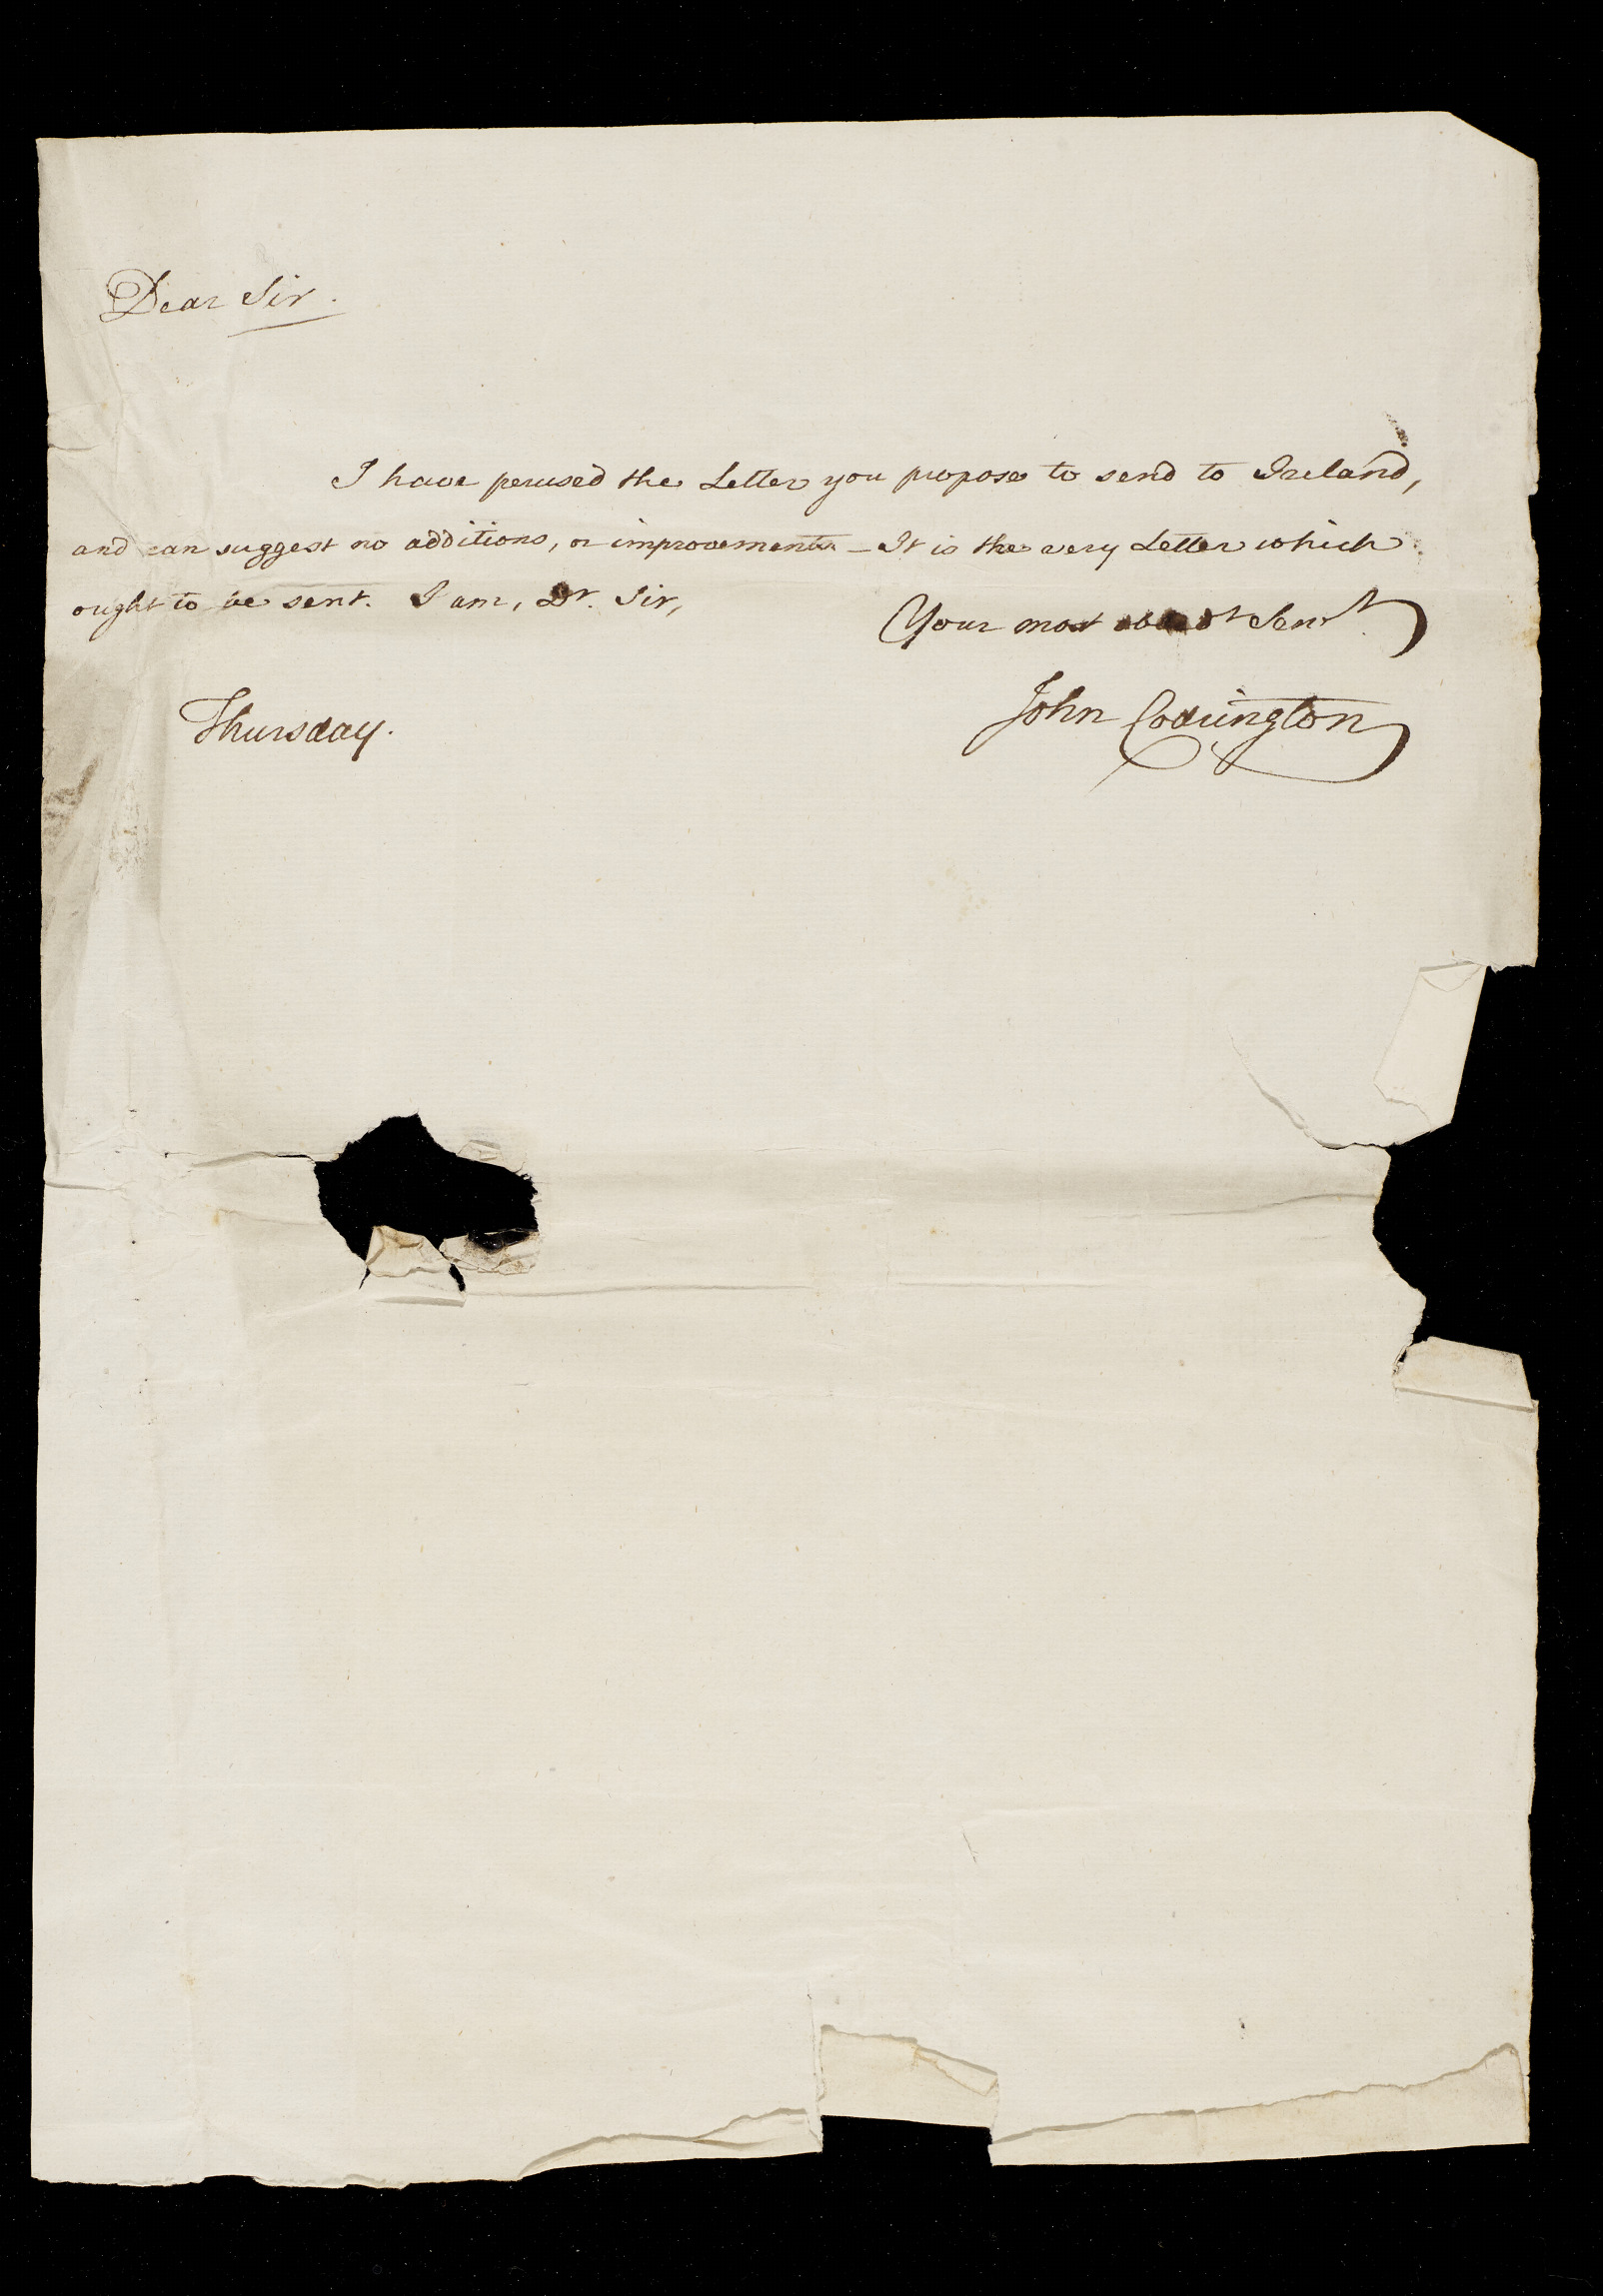 Dear Sir.
I have perused the Letter you propose to send to Ireland,
and can suggest no additions, or improvements - It is the very Letter which
ought to be sent. I am, Dr. Sir,
Your most Servt.
Thursday.
John Codrington